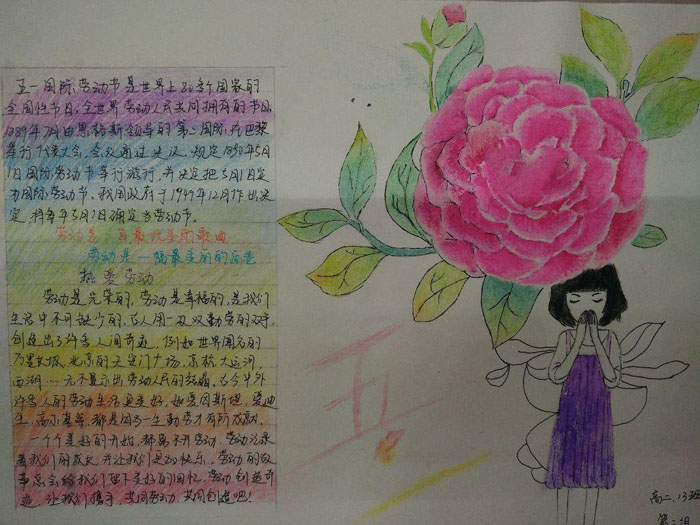 五一国际劳动节是世界上80多个国家的
全国性节日。全世界劳动人民共同拥有的节日。
1889年7月由恩格斯领导的第二国际,在巴黎
举行代表大会,会议通过决议,规定1890年5月
1日国际劳动节举行游行,并决定把5月1日定
为国际劳动节。我国政府于1949年12月作出决
定,将每年5月1日确定为劳动节。
劳动是一首最优美的歌曲
劳动是一幅最美丽的画卷
热爱劳动
劳动是光荣的,劳动是幸福的,是我们
生活中不可缺少的。古人用一双双勤劳的双手,
创造出了许多人间奇迹,例如世界闻名的
万里长城、北京的天安门广场、京杭大运河、
西湖……无不显示出劳动人民的结晶。古今中外
许多人的劳动生活更美好,如爱因斯坦、爱迪
生、高尔基等,都是因为一生勤劳才有所成就。
一个个美好的开始,都离不开劳动,劳动记录
着我们的成长,并让我们更加快乐,劳动的故
事总会给我们留下美好的回忆,劳动创造奇
迹,让我们携手,共同劳动,共同创造吧!
五.一
高二.13班
第二组